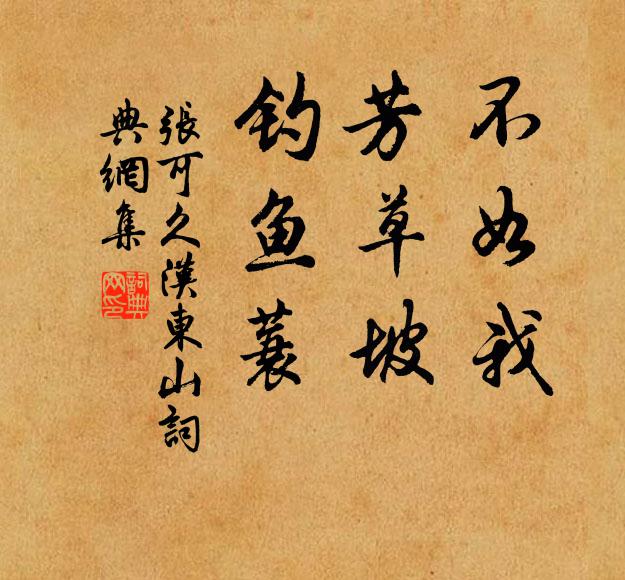 不如我
芳草坡
钓鱼蓑
張可久漢東山詞
典網集
詞典网印